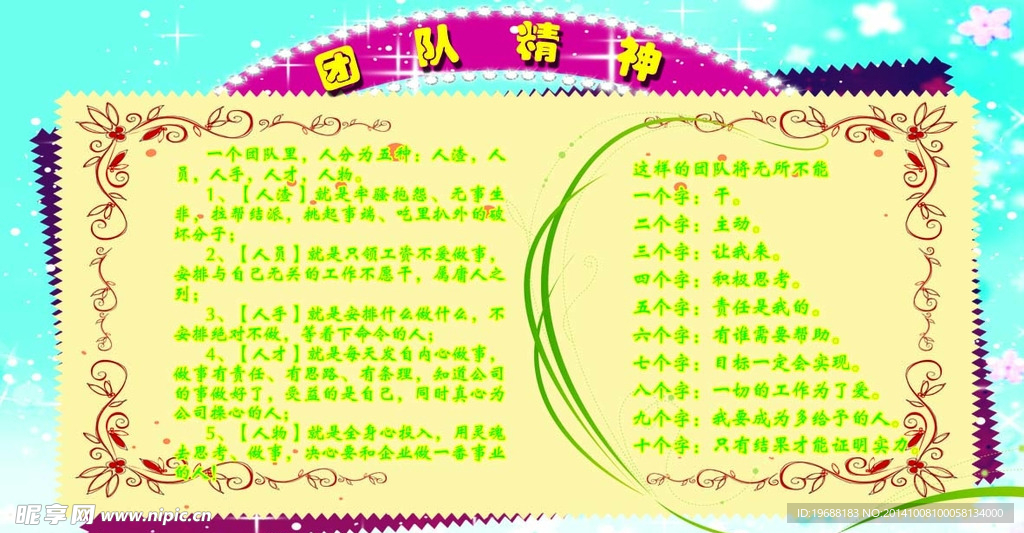 团队精神
一个团队里，人分为五种：人渣，人
员，人手，人才，人物。
1、【人渣】就是牢骚抱怨、无事生
非，拉帮结派，挑起事端、吃里扒外的破
坏分子；
2、【人员】就是只领工资不爱做事，
安排与自己无关的工作不愿干，属庸人之
列；
3、【人手】就是安排什么做什么，不
安排绝对不做，等着下命令的人；
4、【人才】就是每天发自内心做事，
做事有责任、有思路、有条理，知道公司
的事做好了，受益的是自己，同时真心为
公司操心的人；
5、【人物】就是全身心投入，用灵魂
去思考、做事，决心要和企业做一番事业
的人！
这样的团队将无所不能
一个字：干。
二个字：主动。
三个字：让我来。
四个字：积极思考。
五个字：责任是我的。
六个字：有谁需要帮助。
七个字：目标一定会实现。
八个字：一切的工作为了爱。
九个字：我要成为多给予的人。
十个字：只有结果才能证明实力。
昵享网 www.nipic.cn
ID:19688183 NO:20141008100058134000